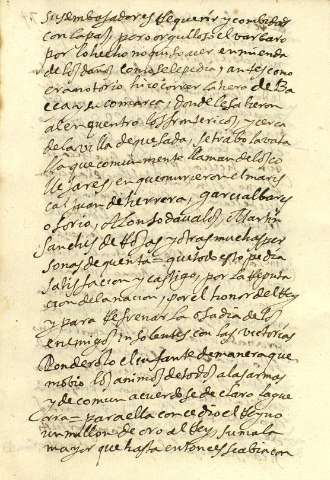 sus embajadores Requerir y combidar
con la paz, pero orgulloso el varbaro
por lo hecho no quiso aver enmienda
de los daños como se le pedia, antes como
era notorio hiço correr la tierra de Ba
eça y su comarca, donde le salieron
al enquentro los fronseriços y cerca
de la villa de quesada, se trabo la vata
lla que comunmente llaman de los co
llejares, en que murieron el maris
cal juan de herrera, garcia albares
osorio, Alonso davalos, Martin
sanchis de Rojas y otras muchas per
sonas de quenta = que todo esto pedia
satisfacion y castigo, por la Reputa
cion de la nacion, por el honor del Rey
y para Refrenar la osadia de los
enemigos insolentes con las victorias
Ponderolo el infante de manera que
mobio los animos de todos a las armas
y de comun acuerdo se declaro la gue
rra = para ella concedio el Reyno
un millon de oro al Rey, suma la
mayor que hasta entonces se abia con